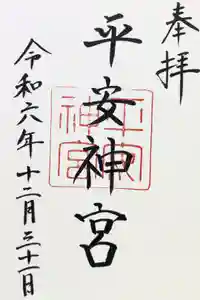 奉拝
平安神宮
平安
神宮
令和六年十二月三十一日